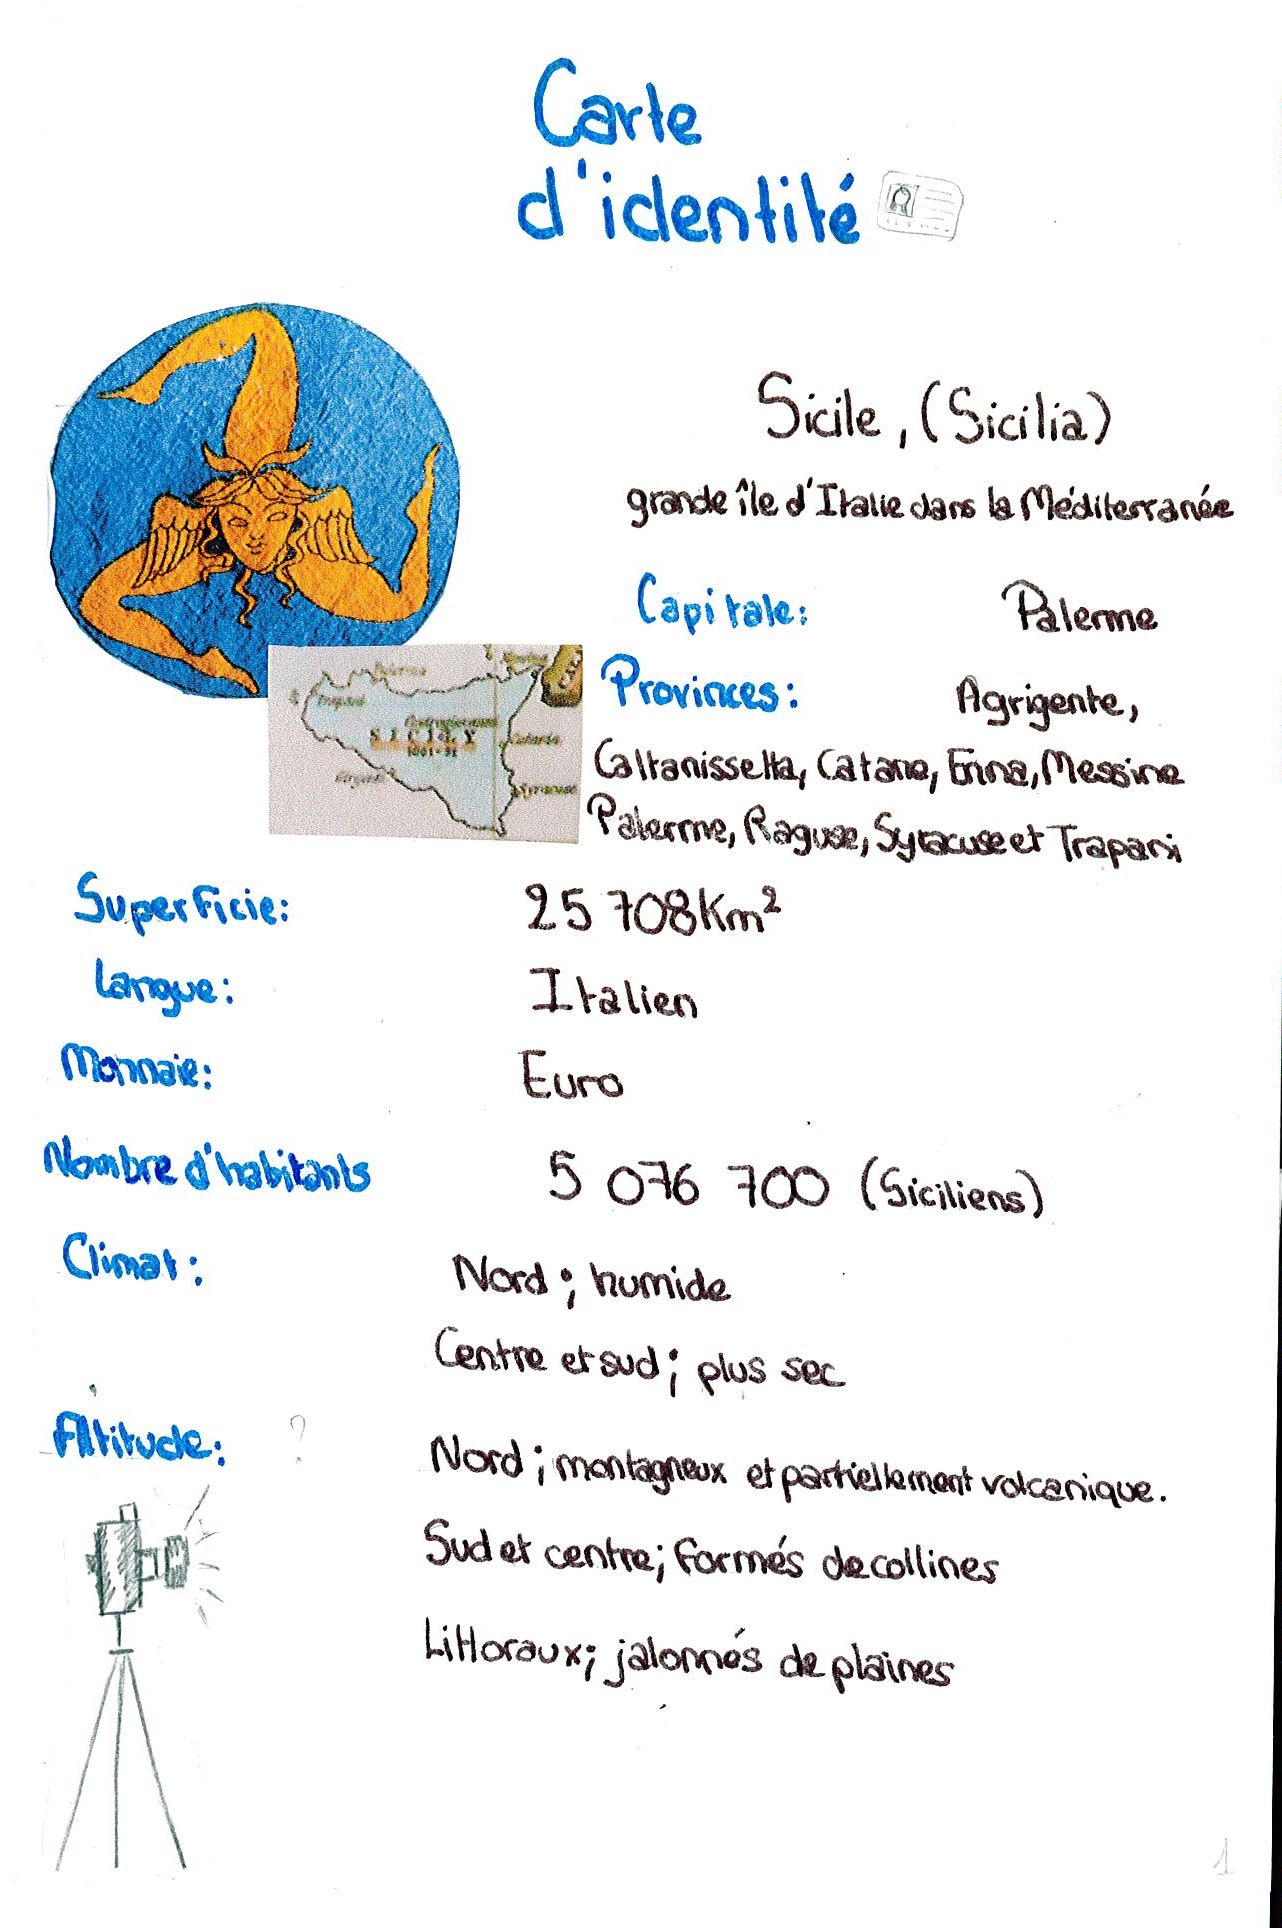 Carte
d'identité
Sicile, (Sicilia)
grande île d'Italie dans la Méditerranée
Capitale: Palerme
Provinces: Agrigente,
Caltanissetta, Catane, Enna, Messine
Palerme, Raguse, Syracuse et Trapani
SICILY
Superficie: 25 708Km²
Langue: Italien
Monnaie: Euro
Nombre d'habitants 5 076 700 (Siciliens)
Climat: Nord; humide
Centre et sud; plus sec
Altitude: ? Nord; montagneux et partiellement volcanique.
Sud et centre; formés de collines
Littoraux; jalonnés de plaines
1